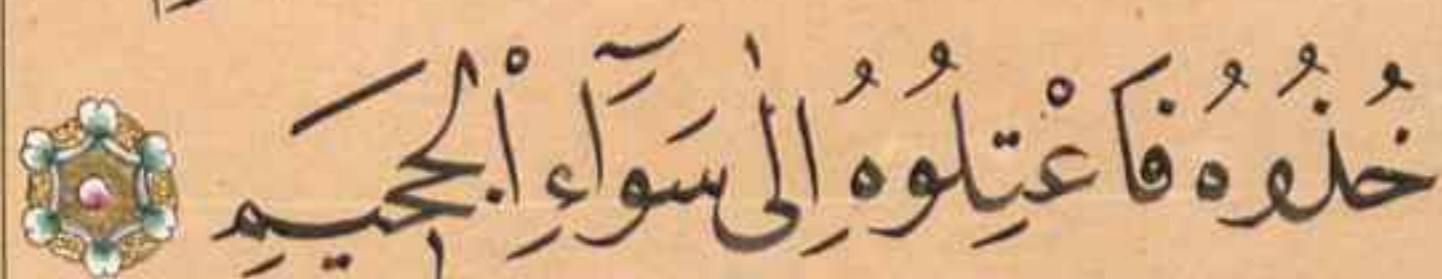 خُذُوهُ فَاعْتِلُوهُ اِلٰى سَوَٓاءِ الْجَحٖيمِ